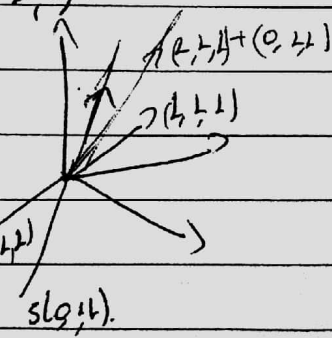 (1,1,1)+(0,1,1)
(1,1,1)
s(0,1,1).